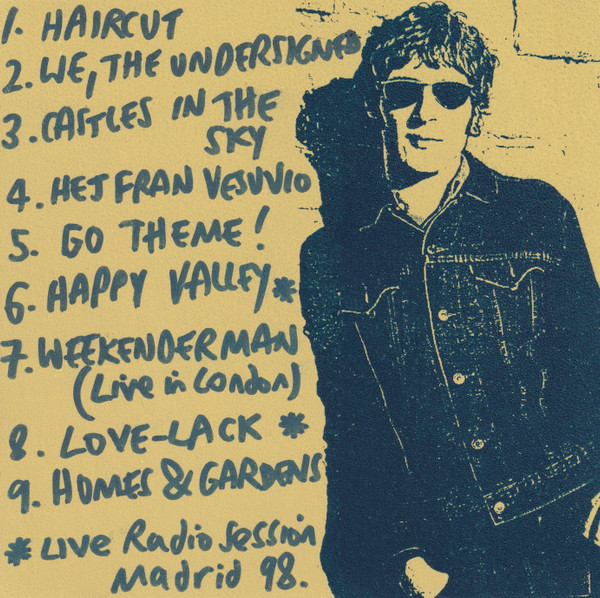 1. HAIRCUT
2. WE, THE UNDERSIGNED
3. CASTLES IN THE
SKY
4. HEJ FRAN VESUVIO
5. GO THEME!
6. HAPPY VALLEY*
7. WEEKENDERMAN
(Live in London)
8. LOVE-LACK *
9. HOMES & GARDENS
* LIVE Radio Session
Madrid 98.